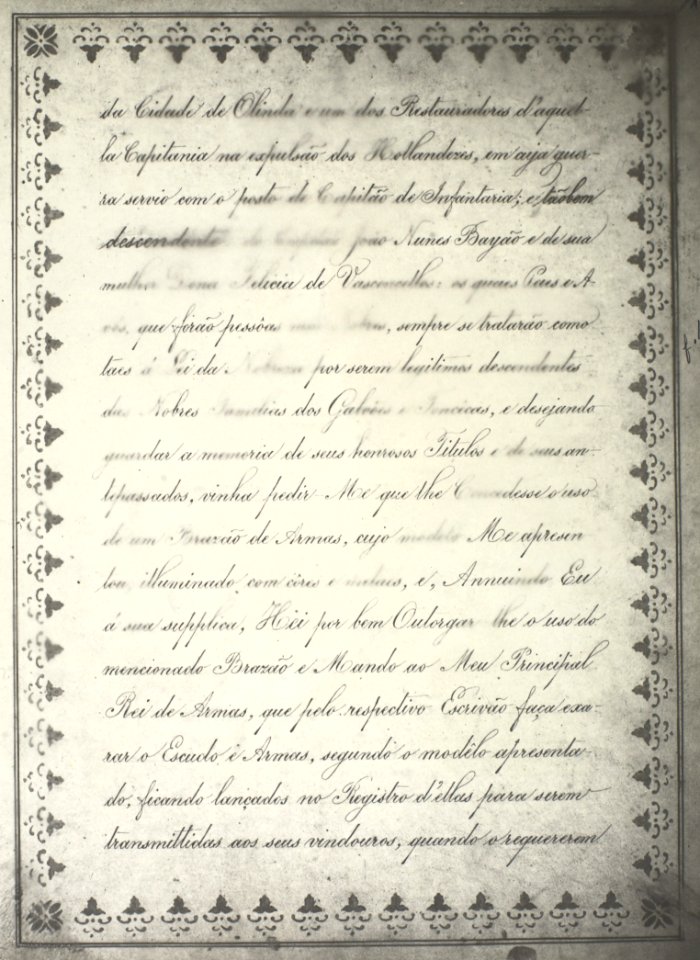 da Cidade de Olinda e um dos Restauradores d'aquel-
la Capitania na expulsão dos Hollandezes, em cuja guer-
ra servio com o posto de Capitão de Infantaria; e tãobem
descendente do Capitão João Nunes Bayão e de sua
mulher Dona Felicia de Vasconcellos: os quaes Paes e A-
vós, que fôrão pessôas nobres, sempre se tratarão como
taes á Lei da Nobreza por serem legitimos descendentes
das Nobres Familias dos Galvões e, e desejando
guardar a memoria de seus honrosos Titulos e de seus an-
tepassados, vinha pedir-Me que lhe Concedesse o uso
de um Brazão de Armas, cujo modelo Me apresen
tou, illuminado com côres e, e, Annuindo Eu
á sua supplica, Hei por bem Outorgar-lhe o uso do
mencionado Brazão e Mando ao Meu Principal
Rei de Armas, que pelo respectivo Escrivão faça exa-
rar o Escudo e Armas, segundo o modêlo apresenta-
do, ficando lançados no Registro d'ellas para serem
transmittidas aos seus vindouros, quando o requererem